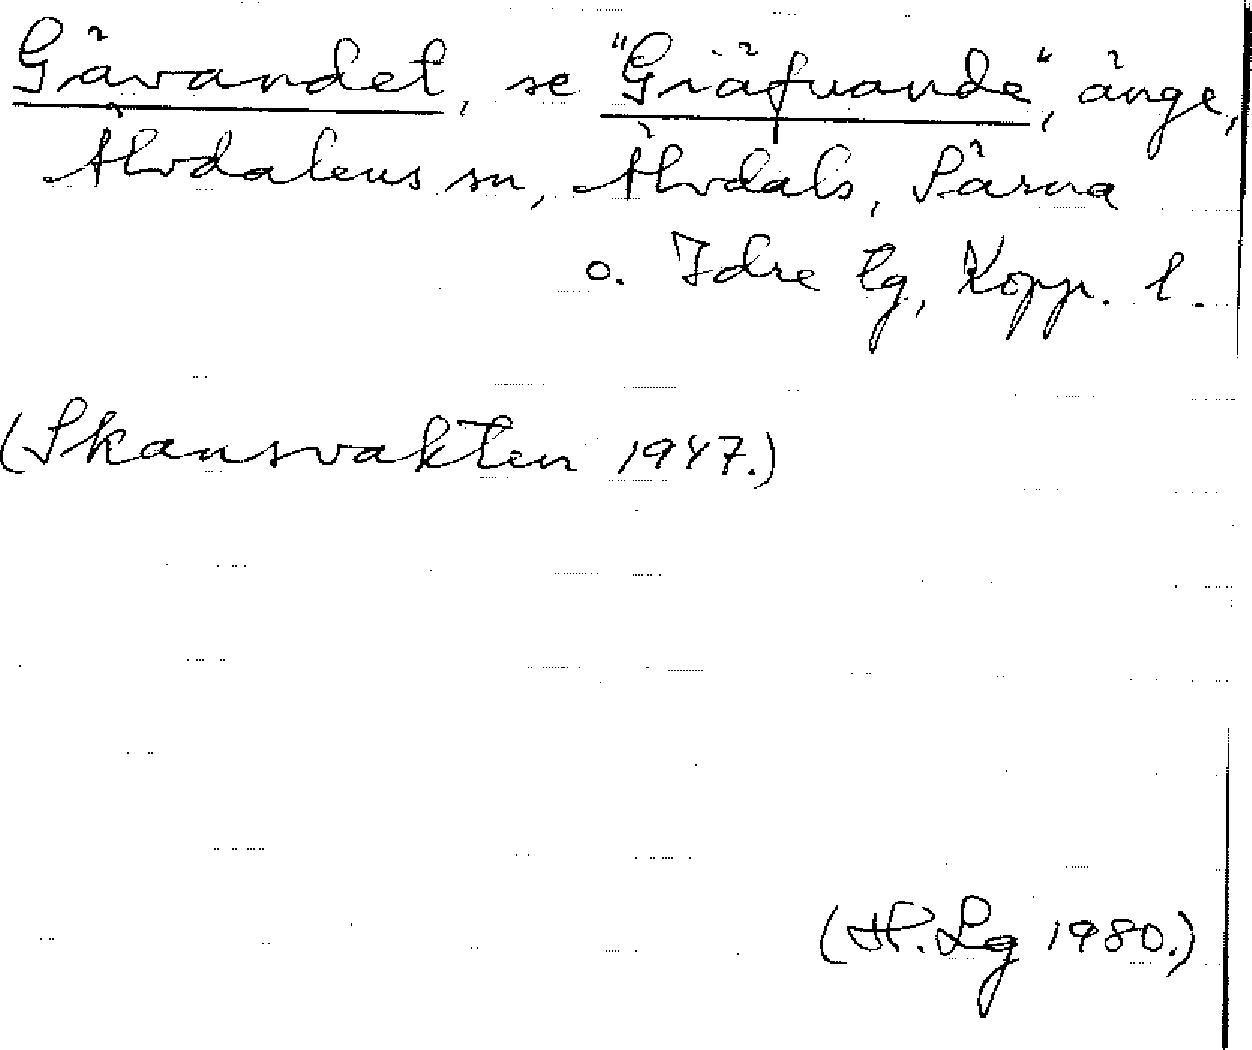 Gävandet, se "Giäfuande", änge,
Älvdalens sn, Älvdals, Särna
o. Idre tg, Kopp. l.
(Skansvakten 1947.)
(H. Lg 1980.)